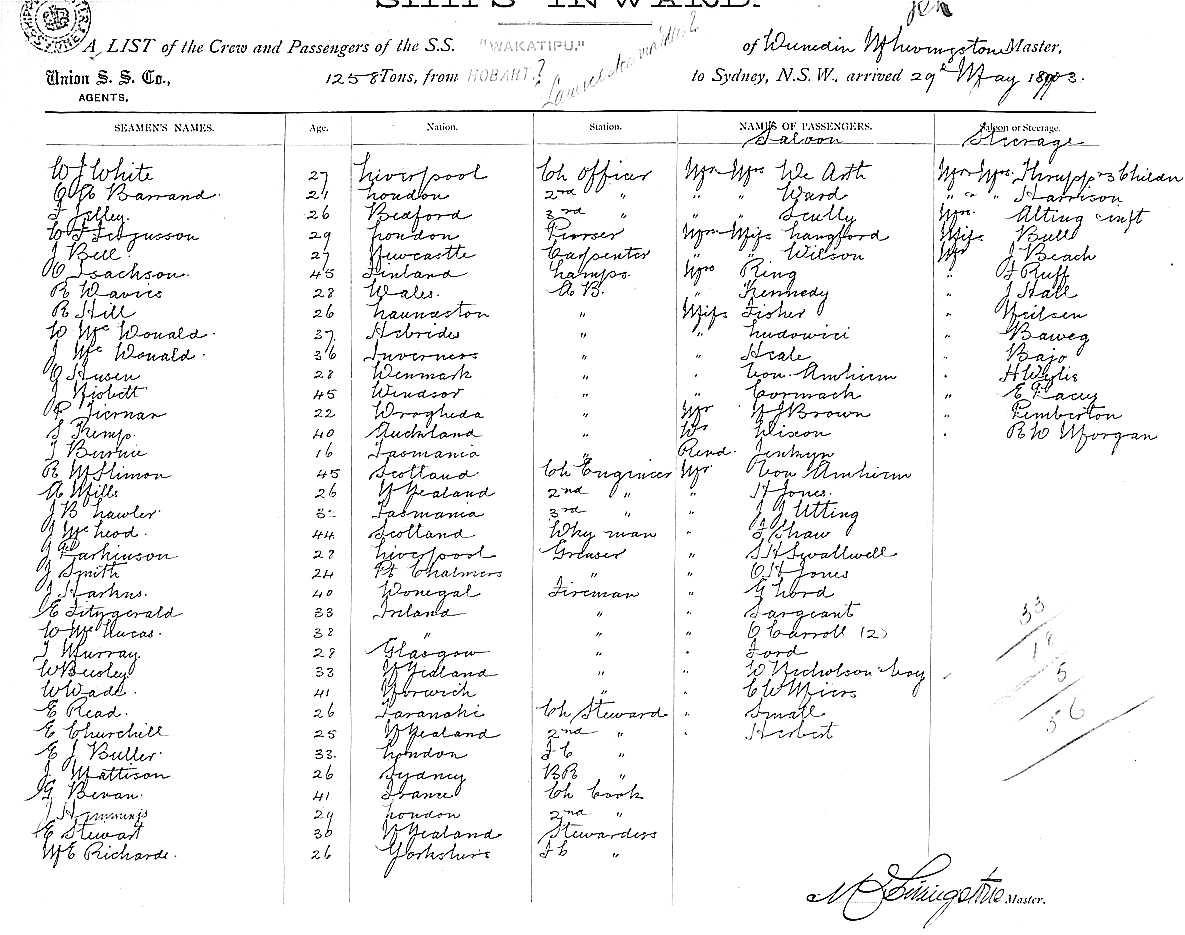 SHIPS INWARD.
A LIST of the Crew and Passengers of the S.S. "WAKATIPU," of Dunedin M Livingstone Master,
Union S. S. Co., 1258 Tons, from HOBART? Launceston to Sydney, N.S.W., arrived 29th May 1893.
AGENTS,
SEAMEN'S NAMES. Age. Nation. Station. NAMES OF PASSENGERS. Saloon or Steerage.
Saloon Steerage
W J White 27 Liverpool Ch Officer Mr Mrs De Arth Mr Mrs Thrupp 3 Childn
Barrand 21 London 2nd " " " Ward " " " Harrison
Jelley 26 Bedford 3rd " " " Scully Mrs Alting inft
Fergusson 29 London Purser Mr Miss Langford Miss Bull
J Bull 27 Newcastle Carpenter " " Wilson Mr J Beach
Isachson 45 Finland Lamps Mrs King " Ruff
R Davies 28 Wales. A B. " Kennedy " J Hall
R Hill 26 " Miss Fisher " Neilsen
W Mc Donald 37 Hebrides " " Ludowici " Baweg
J Mc Donald 36 Inverness " " Heale " Bajo
Husen 28 Denmark " " Von Amhirm " H Wylie
J Nisbett 45 Windsor " " Cormack " E Lacey
P Tiernan 22 Drogheda " Mr Brown " Pemberton
Kemp 40 Auckland " Dr Dixon " R W Morgan
Burnie 16 Tasmania " Revd. Jenkyn
R McSlimon 45 Scotland Ch Engineer Mr Von Amhirm
A Mills 26 N Zealand 2nd " " H Jones.
J B Lawler 3 Tasmania 3rd " " Utting
J McLeod 44 Scotland Dky man " Shaw
Parkinson 28 Liverpool Greaser " S H Swallwell
J Smith 24 Pt Chalmers " " O H Jones
J Harkns 40 Donegal Fireman " G Lord
E Fitzgerald 33 Ireland " " Sargeant
W Mc Lucas. 38 " " " O Carroll (2)
Murray. 28 Glasgow " " Ford
W Busley 33 N Zealand " " W Nicholson boy
W Wade. 41 Norwich " " C W Miers
E Read. 26 Taranaki Ch Steward " Small
E Churchill 25 N Zealand 2nd " " Herbert
E J Buller. 33. London F C "
J Mattison 26 Sydney BR "
G Bevan. 41 France Ch Cook
Hemmings 29 London 2nd "
E Stewart 30 N Zealand Stewardess
M E Richards. 26 Yorkshire F C "
33
18
5
56
M Livingstone Master.